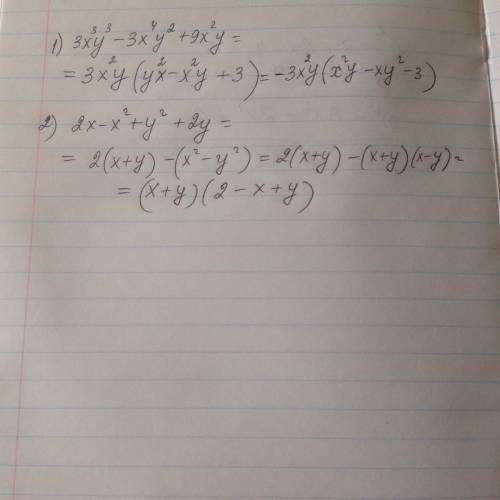 1) 3x³y³ - 3x⁴y² + 9x²y =
= 3x²y (y²x - x²y + 3) = -3x²y (x²y - xy² - 3)
2) 2x - x² + y² + 2y =
= 2(x+y) - (x² - y²) = 2(x+y) - (x+y)(x-y) =
= (x+y)(2 - x + y)